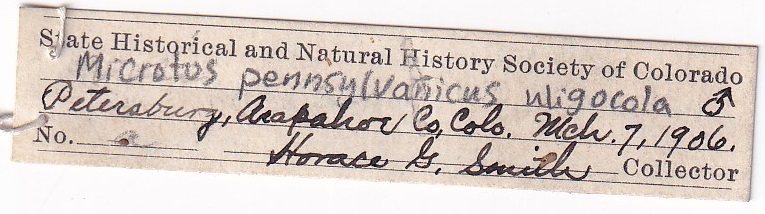 State Historical and Natural History Society of Colorado
Microtus pennsylvanicus uligocola ♂
Petersburg, Arapahoe Co, Colo. Mch. 7, 1906.
No.
Horace G. Smith Collector